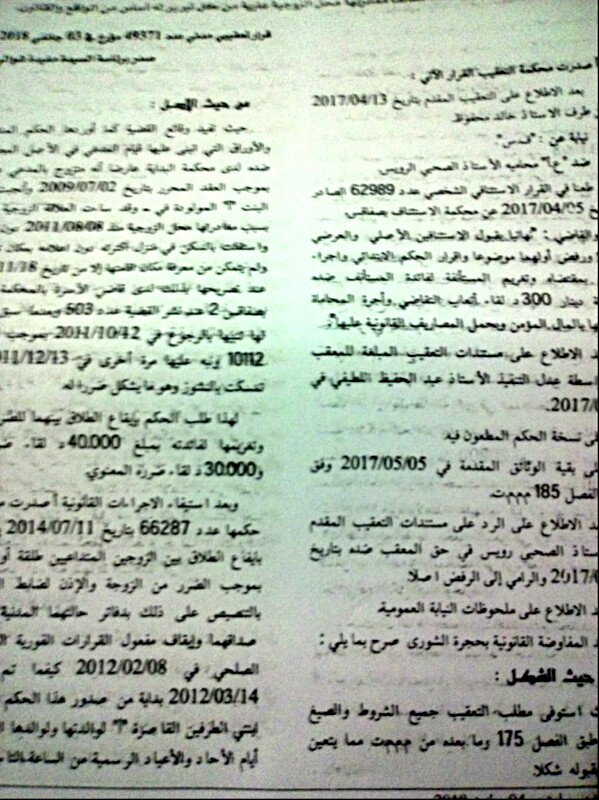 قرار تعقيبي مدني عدد 49371 مؤرخ في 03 جانفي 2018
صدر برئاسة السيدة
أصدرت محكمة التعقيب القرار الآتي :
بعد الاطلاع على التعقيب المقدم بتاريخ 2017/04/13
طرف الاستاذ خالد محفوظ.
نيابة عن : "ف.س"
ضد "ع.أ" محاميه الأستاذ الصحبي الرويس
طعنا في القرار الاستئنافي الشخصي عدد 62989 الصادر
2017/04/05 عن محكمة الاستئناف بصفاقس
والقاضي : "نهائيا بقبول الاستئنافين الأصلي والعرضي
ورفض أولهما موضوعا واقرار الحكم الابتدائي واجراء
بمقتضاه وتغريم المستأنفة لفائدة المستأنف ضده
دينار 300 د لقاء أتعاب التقاضي وأجرة المحاماة
بالمال المؤمن وبحمل المصاريف القانونية عليها".
الاطلاع على مستندات التعقيب المبلغة للمعقب
عدل التنفيذ الأستاذ عبد الحفيظ اللطيفي في
نسخة الحكم المطعون فيه
بقية الوثائق المقدمة في 2017/05/05 وفق
الفصل 185 م.م.م.ت.
الاطلاع على الرد على مستندات التعقيب المقدم
الصحبي رويس في حق المعقب ضده بتاريخ
والرامي إلى الرفض اصلا.
الاطلاع على ملحوظات النيابة العمومية.
المفاوضة القانونية بحجرة الشورى صرح بما يلي :
حيث الشكل :
استوفى مطلب التعقيب جميع الشروط والصيغ
الفصل 175 وما بعده من م.م.م.ت مما يتعين
قبوله شكلا
من حيث الأصل :
حيث تفيد وقائع القضية كما أوردها الحكم
والأوراق التي انبنى عليها قيام المدعي في الأصل
ضده لدى محكمة البداية عارضا أنه متزوج بالمدعى
بموجب العقد المحرر بتاريخ 2009/07/02
البنت "أ" المولودة في .. وقد ساءت العلاقة الزوجية
بسبب مغادرتها محل الزوجية منذ 2011/08/08 دون
واستقلت بالسكن في منزل اكترته دون اعلامه بمكان
ولم يتمكن من معرفة مكان اقامتها إلا من تاريخ
عند تصريحها بذلك لدى قاضي الأسرة بالمحكمة
بصفاقس 2 عند نشر القضية عدد 603 وعندما سبق
لها تنبيها بالرجوع في 2011/10/12 بموجب
10112 ونبه عليها مرة أخرى في
تمسكت بالنشوز وهو ما يشكل ضررا له.
لهذا طلب الحكم بإيقاع الطلاق بينهما للضرر
وتغريمها لفائدته بمبلغ 40.000 د لقاء
و30.000 د لقاء ضرره المعنوي.
وبعد استيفاء الاجراءات القانونية أصدرت
حكمها عدد 66287 بتاريخ 2014/07/11
بايقاع الطلاق بين الزوجين المتداعيين طلقة
بموجب الضرر من الزوجة والإذن لضابط
بالتنصيص على ذلك بدفاتر حالتهما المدنية
صداقهما وإيقاف مفعول القرارات الفورية
الصلحي في 2012/02/08 كيفما تم
2012/03/14 بداية من صدور هذا الحكم
ابنتي الطرفين القاصرة "أ" لوالدتها ولوالدها
أيام الآحاد والأعياد الرسمية من الساعة